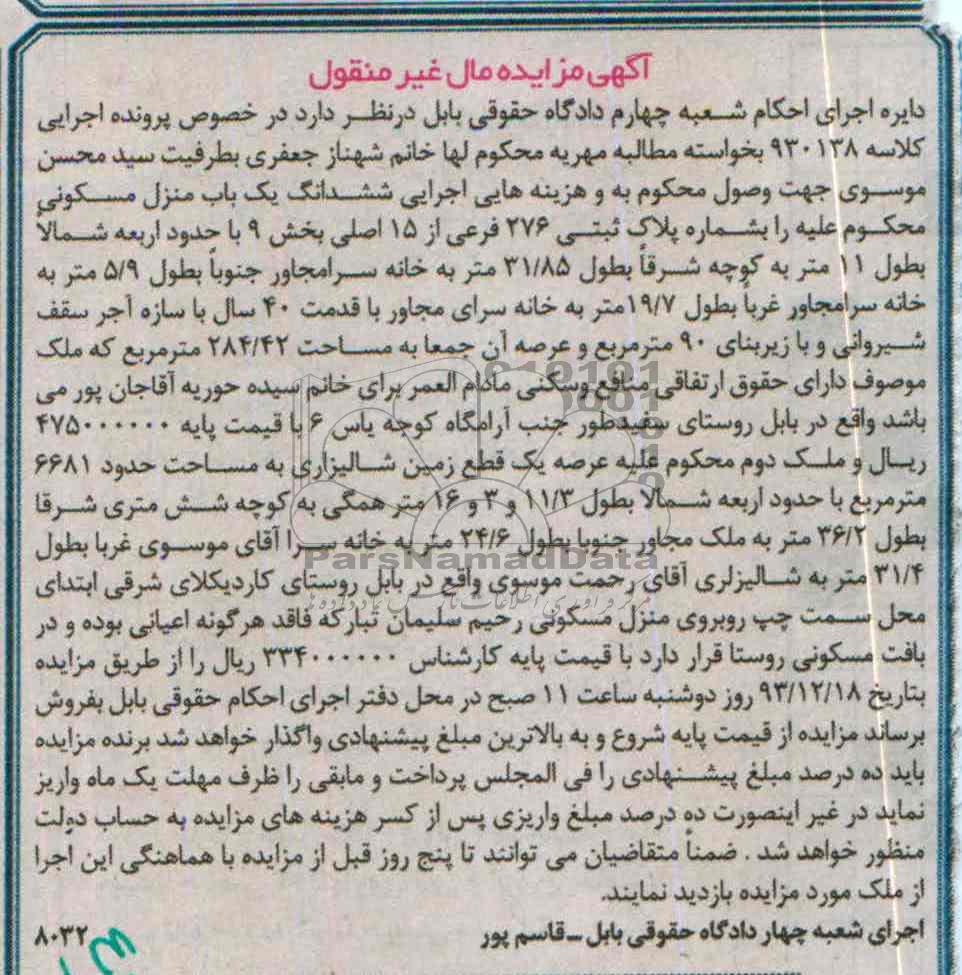 آگهی مزایده مال غیر منقول
دایره اجرای احکام شعبه چهارم دادگاه حقوقی بابل درنظر دارد در خصوص پرونده اجرایی
کلاسه ۹۳۰۱۳۸ بخواسته مطالبه مهریه محکوم لها خانم شهناز جعفری بطرفیت سید محسن
موسوی جهت وصول محکوم به و هزینه هایی اجرایی ششدانگ یک باب منزل مسکونی
محکوم علیه را بشماره پلاک ثبتی ۲۷۶ فرعی از ۱۵ اصلی بخش ۹ با حدود اربعه شمالاً
بطول ۱۱ متر به کوچه شرقاً بطول ۳۱/۸۵ متر به خانه سرامجاور جنوباً بطول ۵/۹ متر به
خانه سرامجاور غرباً بطول ۱۹/۷متر به خانه سرای مجاور با قدمت ۴۰ سال با سازه آجر سقف
شیروانی و با زیربنای ۹۰ مترمربع و عرصه آن جمعا به مساحت ۲۸۴/۴۲ مترمربع که ملک
موصوف دارای حقوق ارتفاقی منافع وسکنی مادام العمر برای خانم سیده حوریه آقاجان پور می
باشد واقع در بابل روستای سفیدطور جنب آرامگاه کوچه یاس ۶ با قیمت پایه ۴۷۵۰۰۰۰۰۰
ریال و ملک دوم محکوم علیه عرصه یک قطع زمین شالیزاری به مساحت حدود ۶۶۸۱
مترمربع با حدود اربعه شمالا بطول ۱۱/۳ و ۳ و ۱۶ متر همگی به کوچه شش متری شرقا
بطول ۳۶/۲ متر به ملک مجاور جنوبا بطول ۲۴/۶ متر به خانه سرا آقای موسوی غربا بطول
۳۱/۴ متر به شالیزلری آقای رحمت موسوی واقع در بابل روستای کاردیکلای شرقی ابتدای
محل سمت چپ روبروی منزل مسکونی رحیم سلیمان تبارکه فاقد هرگونه اعیانی بوده و در
بافت مسکونی روستا قرار دارد با قیمت پایه کارشناس ۳۳۴۰۰۰۰۰۰ ریال را از طریق مزایده
بتاریخ ۹۳/۱۲/۱۸ روز دوشنبه ساعت ۱۱ صبح در محل دفتر اجرای احکام حقوقی بابل بفروش
برساند مزایده از قیمت پایه شروع و به بالاترین مبلغ پیشنهادی واگذار خواهد شد برنده مزایده
باید ده درصد مبلغ پیشنهادی را فی المجلس پرداخت و مابقی را ظرف مهلت یک ماه واریز
نماید در غیر اینصورت ده درصد مبلغ واریزی پس از کسر هزینه های مزایده به حساب دولت
منظور خواهد شد . ضمناً متقاضیان می توانند تا پنج روز قبل از مزایده با هماهنگی این اجرا
از ملک مورد مزایده بازدید نمایند.
اجرای شعبه چهار دادگاه حقوقی بابل ـ قاسم پور
۸۰۳۲
ParsNamadData